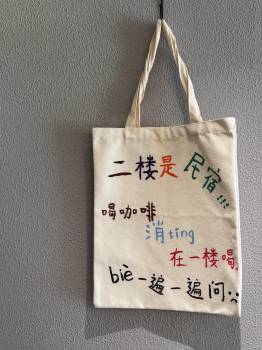 二楼是民宿!!!
喝咖啡
消tíng
在一楼喝.
biè一遍一遍问:(